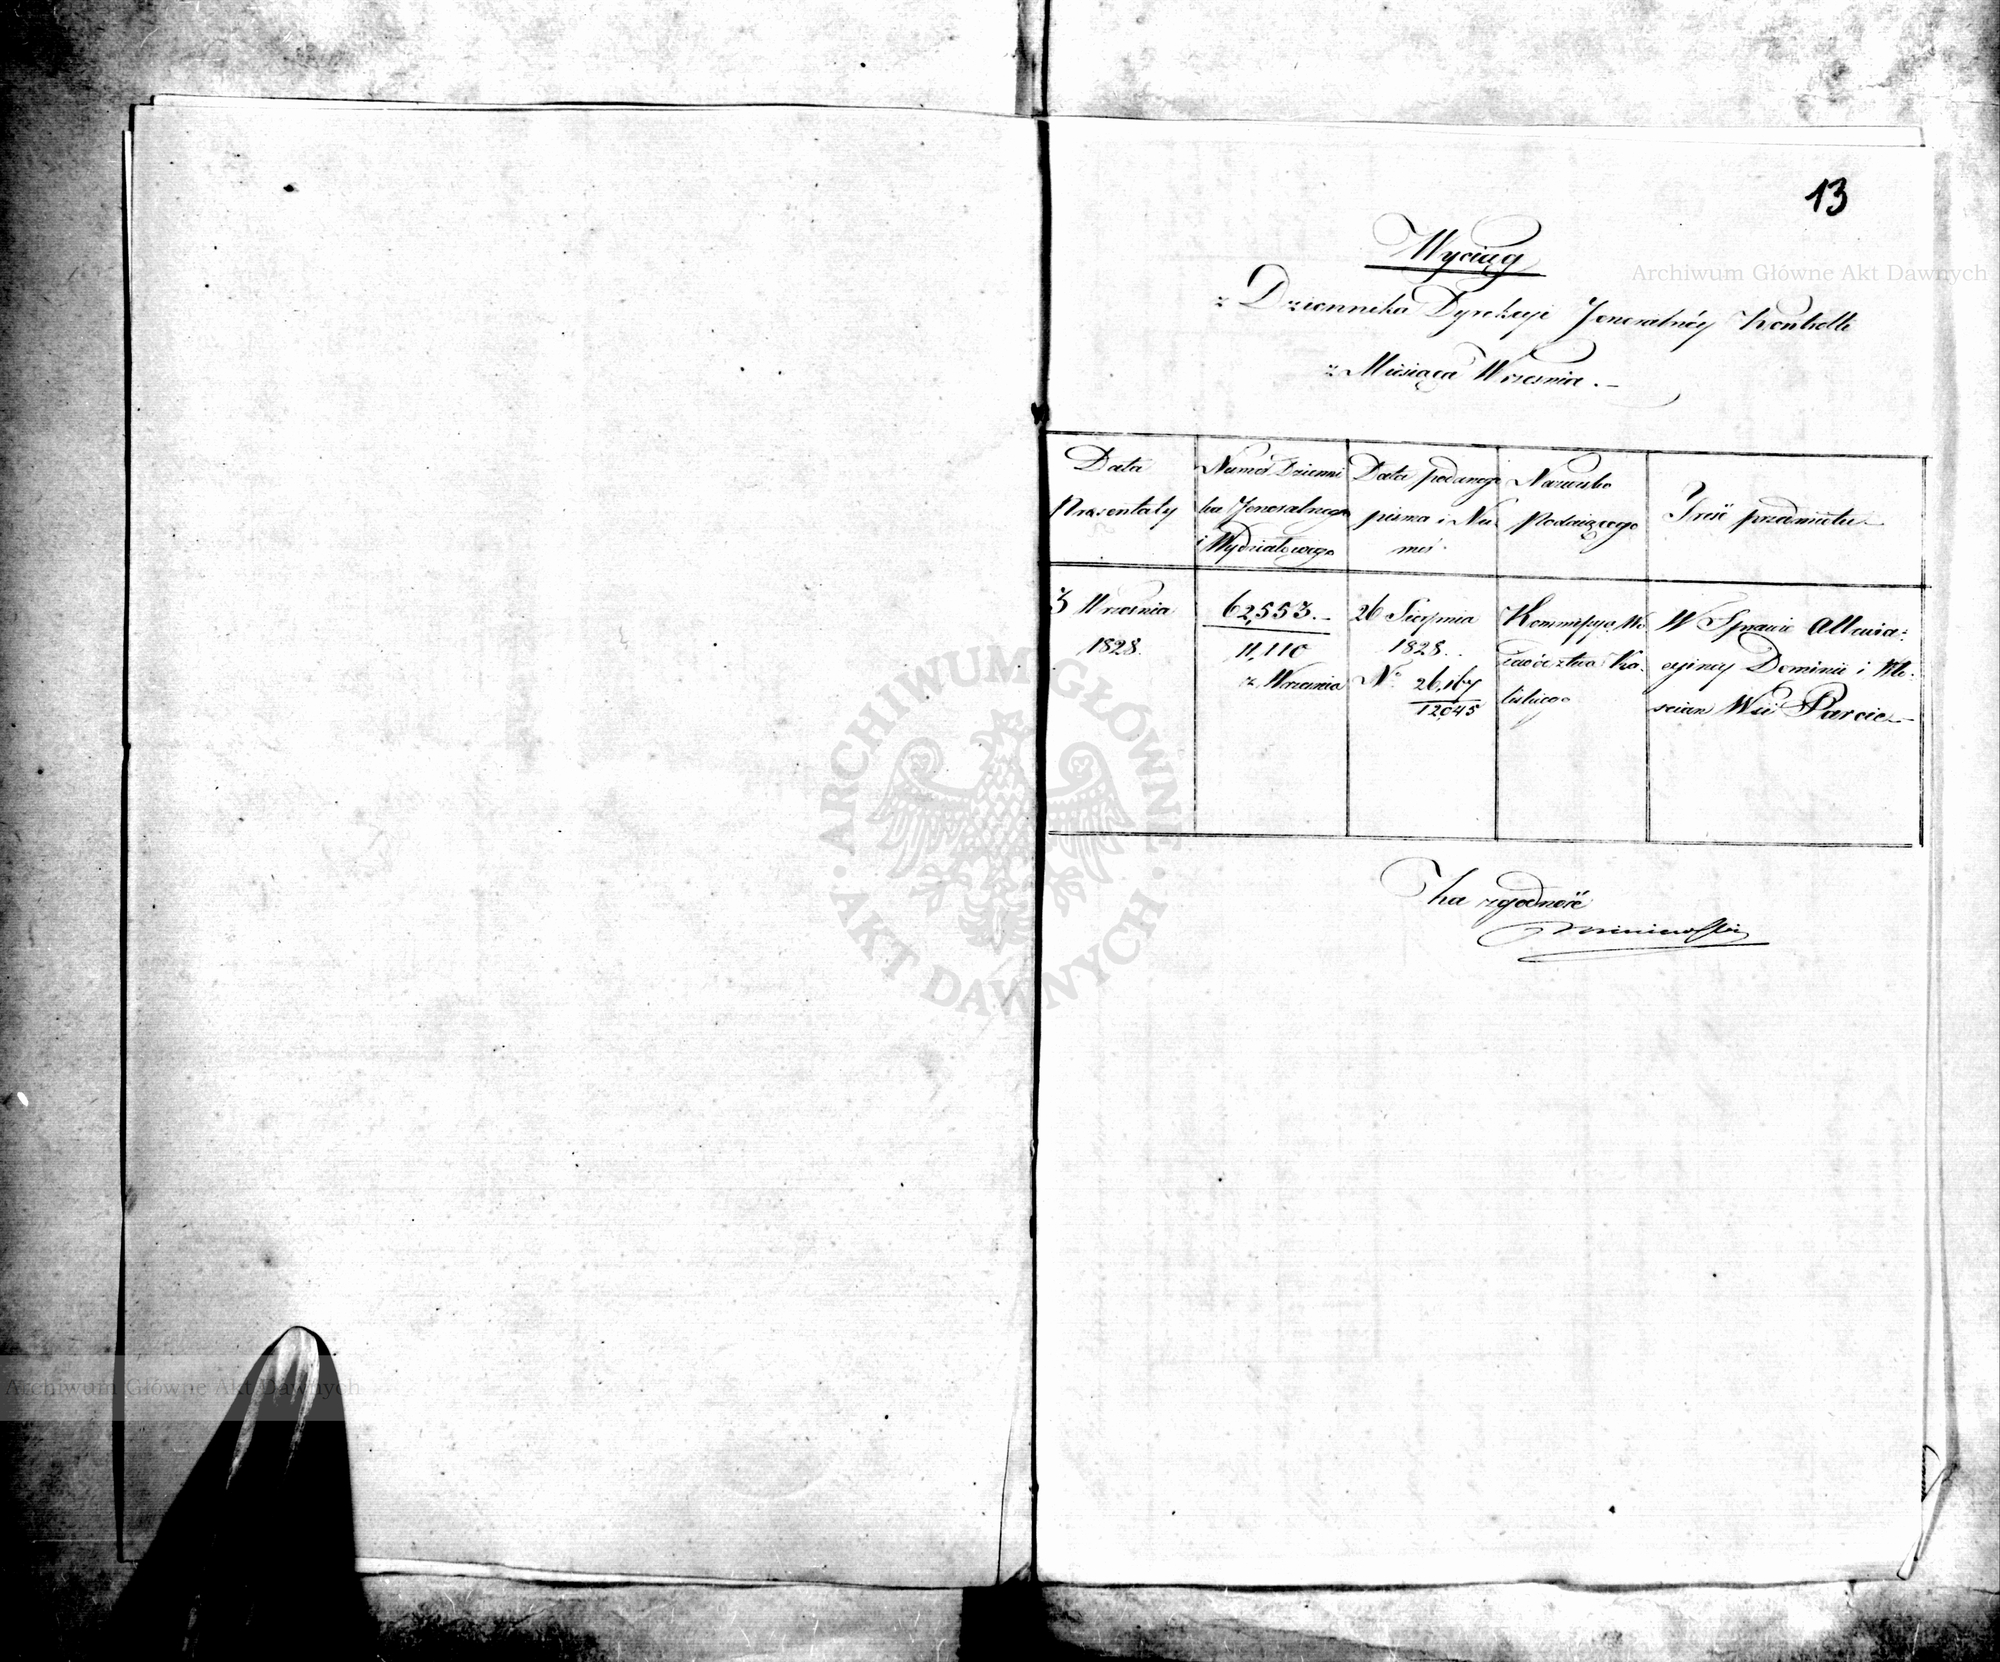 13
Wyciąg
z Dziennika Dyrekcyi Jeneralnéy Kontrolli
z Miesiąca Września. —
Data
Prezentaty
Numer Dzienni
ka Jeneralnego
i Wydziałowego
Data podanego
pisma i Nu
mer
Nazwisko
Podaiącego
Treść przedmiotu
3 Września
1828.
62,553. -
11,110
z Września
26 Sierpnia
1828.
No 26,167
12,045
Kommissya Wo
iewództwa Ka-
liskiego
W Sprawie
cyiney Dominii i Wło-
ścian Wsi Parcice
Za zgodność
Archiwum Główne Akt Dawnych
ARCHIWUM GŁÓWNE · AKT DAWNYCH ·
Archiwum Główne Akt Dawnych